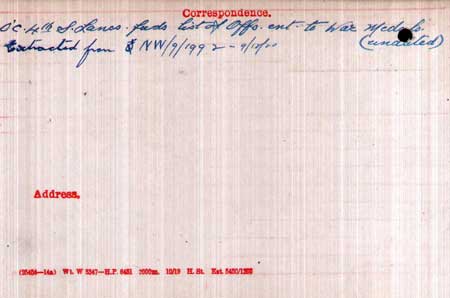 Correspondence.
O.C. 4th S. Lancs. fwds list of Offs. ent. to War Medals
Extracted from $ NW/9/1992 - 9/12/20 (undated)
Address.
(25454—14a) Wt. W 5347—H.P. 6451 7000m. 10/19 H. St. Est. 5450/1500